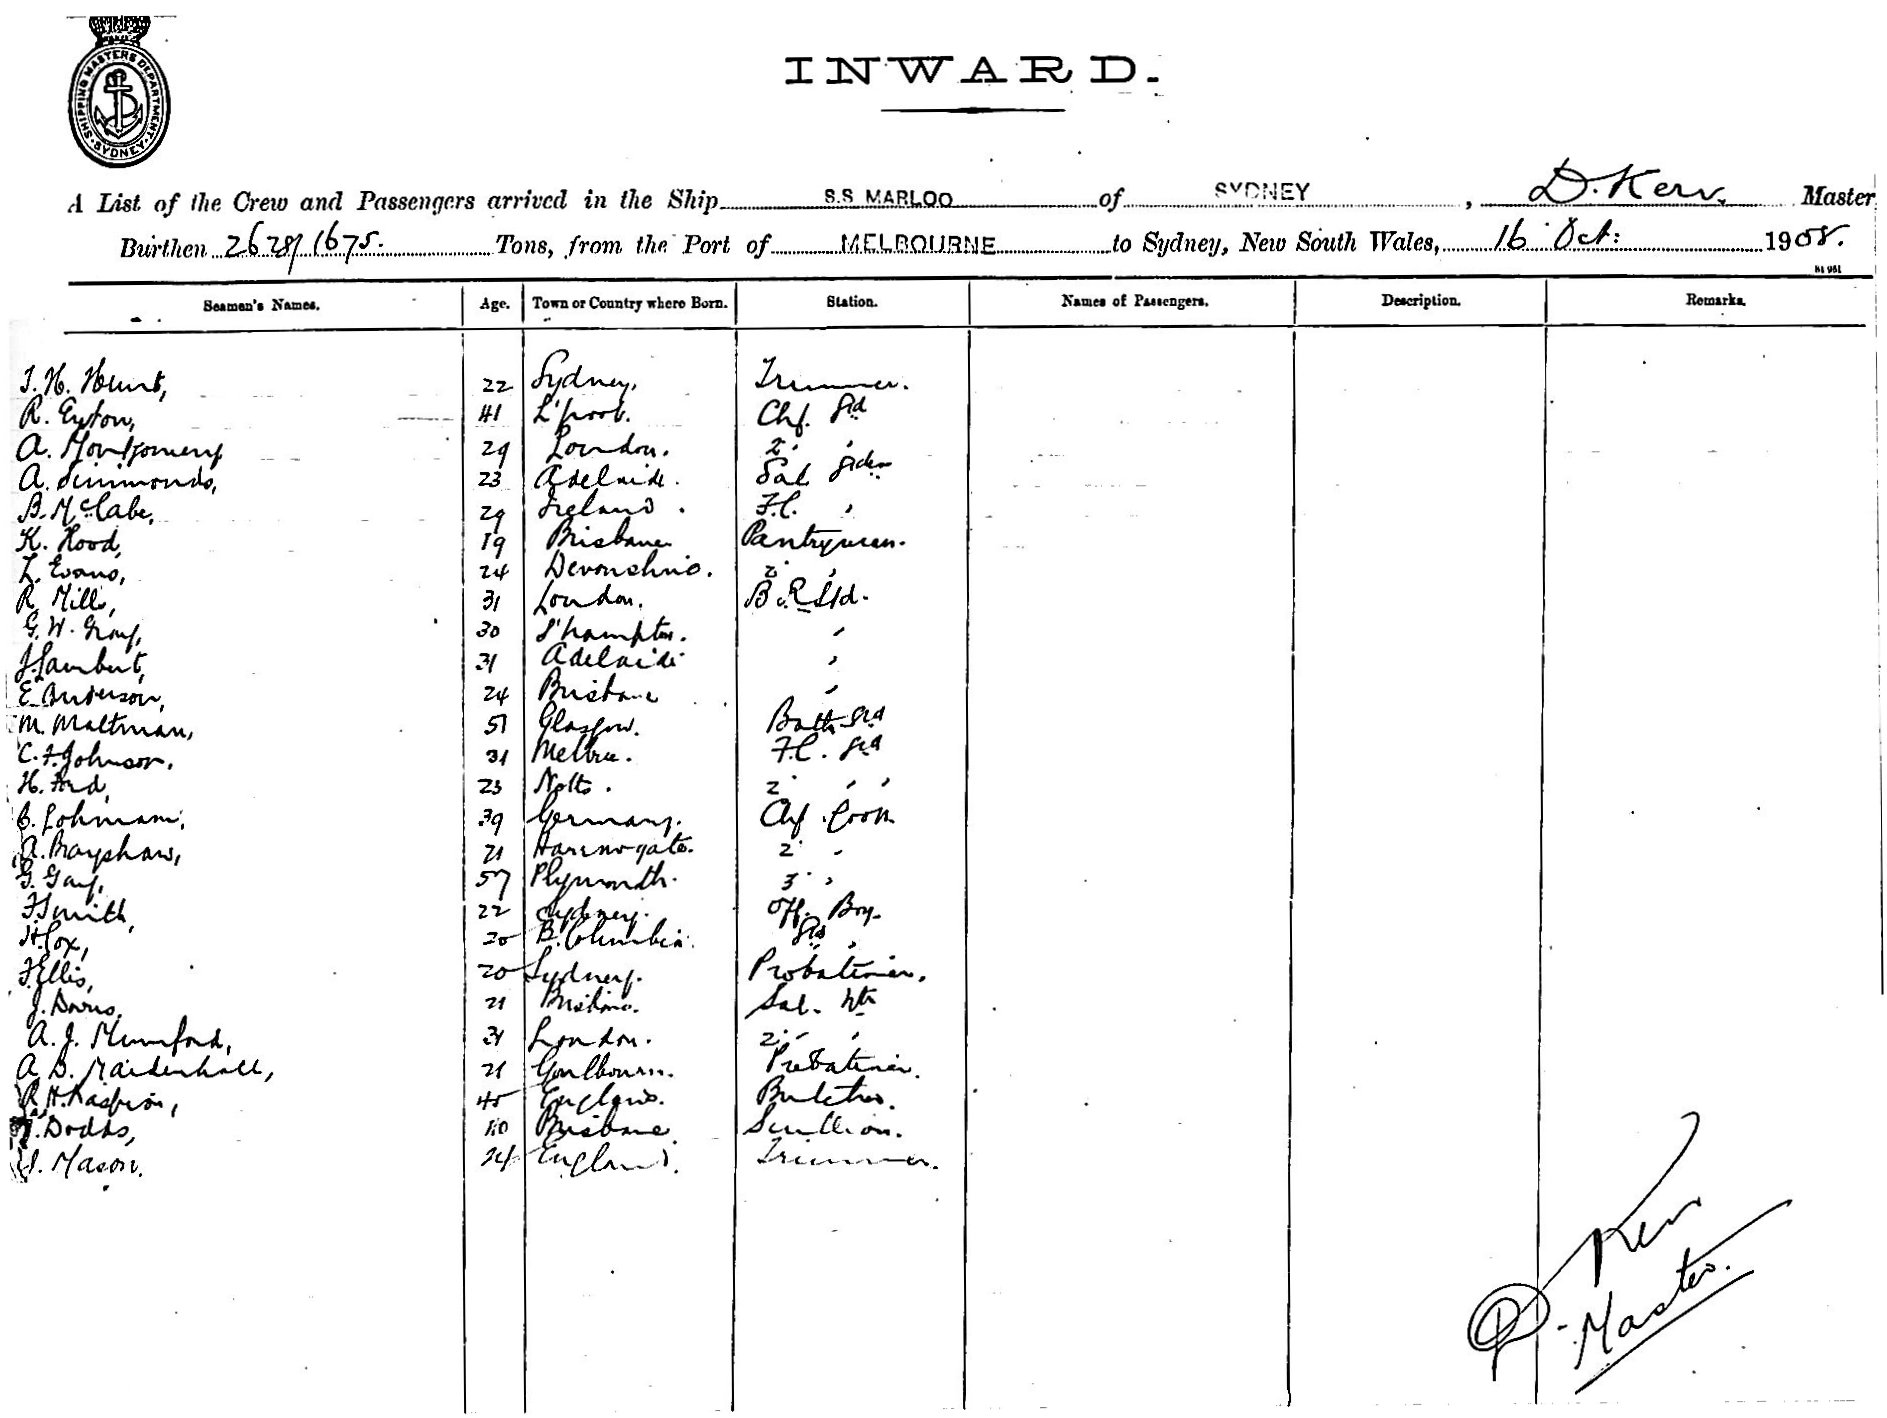 SHIPPING MASTERS DEPARTMENT
SYDNEY
INWARD.
A List of the Crew and Passengers arrived in the Ship S.S MARLOO of SYDNEY, D. Kerr. Master
Burthen 2628/1675. Tons, from the Port of MELBOURNE to Sydney, New South Wales, 16 Oct: 1908.
Seamen's Names. Age. Town or Country where Born. Station. Names of Passengers. Description. Remarks.
J. H. Hunt, 22 Sydney. Trimmer.
R. Eyton, 41 L'pool. Chf. Std
A. Montgomery 29 London. 2 "
A. Simmonds, 23 Adelaide. Sal Stdr
B. McCabe, 29 Ireland. F.C. "
K. Hood, 19 Brisbane Pantryman.
L. Evans, 24 Devonshire. 2 "
R. Mills, 31 London. B.R Std.
G. W. Gray, 30 S'hampton. "
J. Lambert, 31 Adelaide "
E. Anderson, 24 Brisbane "
M. Maltman, 51 Glasgow. Bath Std
C. F. Johnson. 31 Melbne. F.C. Std
H. Ard, 23 Notts. 2 " "
Lohmann, 39 Germany. Chf. Cook
A. Brayshaw, 21 Harrowgate. 2 "
G. Gay, 57 Plymouth. 3 "
F. Smith, 22 Sydney. Off. Boy.
H. Cox, 20 B. Columbia. Std "
F. Ellis, 20 Sydney. Probationer.
J. Downs, 21 Brisbane. Sal. Wtr
A. J. Mumford, 31 London. 2 " "
A B. Maidenhall, 21 Goulbourn. Probationer.
R. H. 45 England. Butcher.
Dodds, Brisbane Scullion.
Mason. 24 England. Trimmer.
D. Kerr
Master.